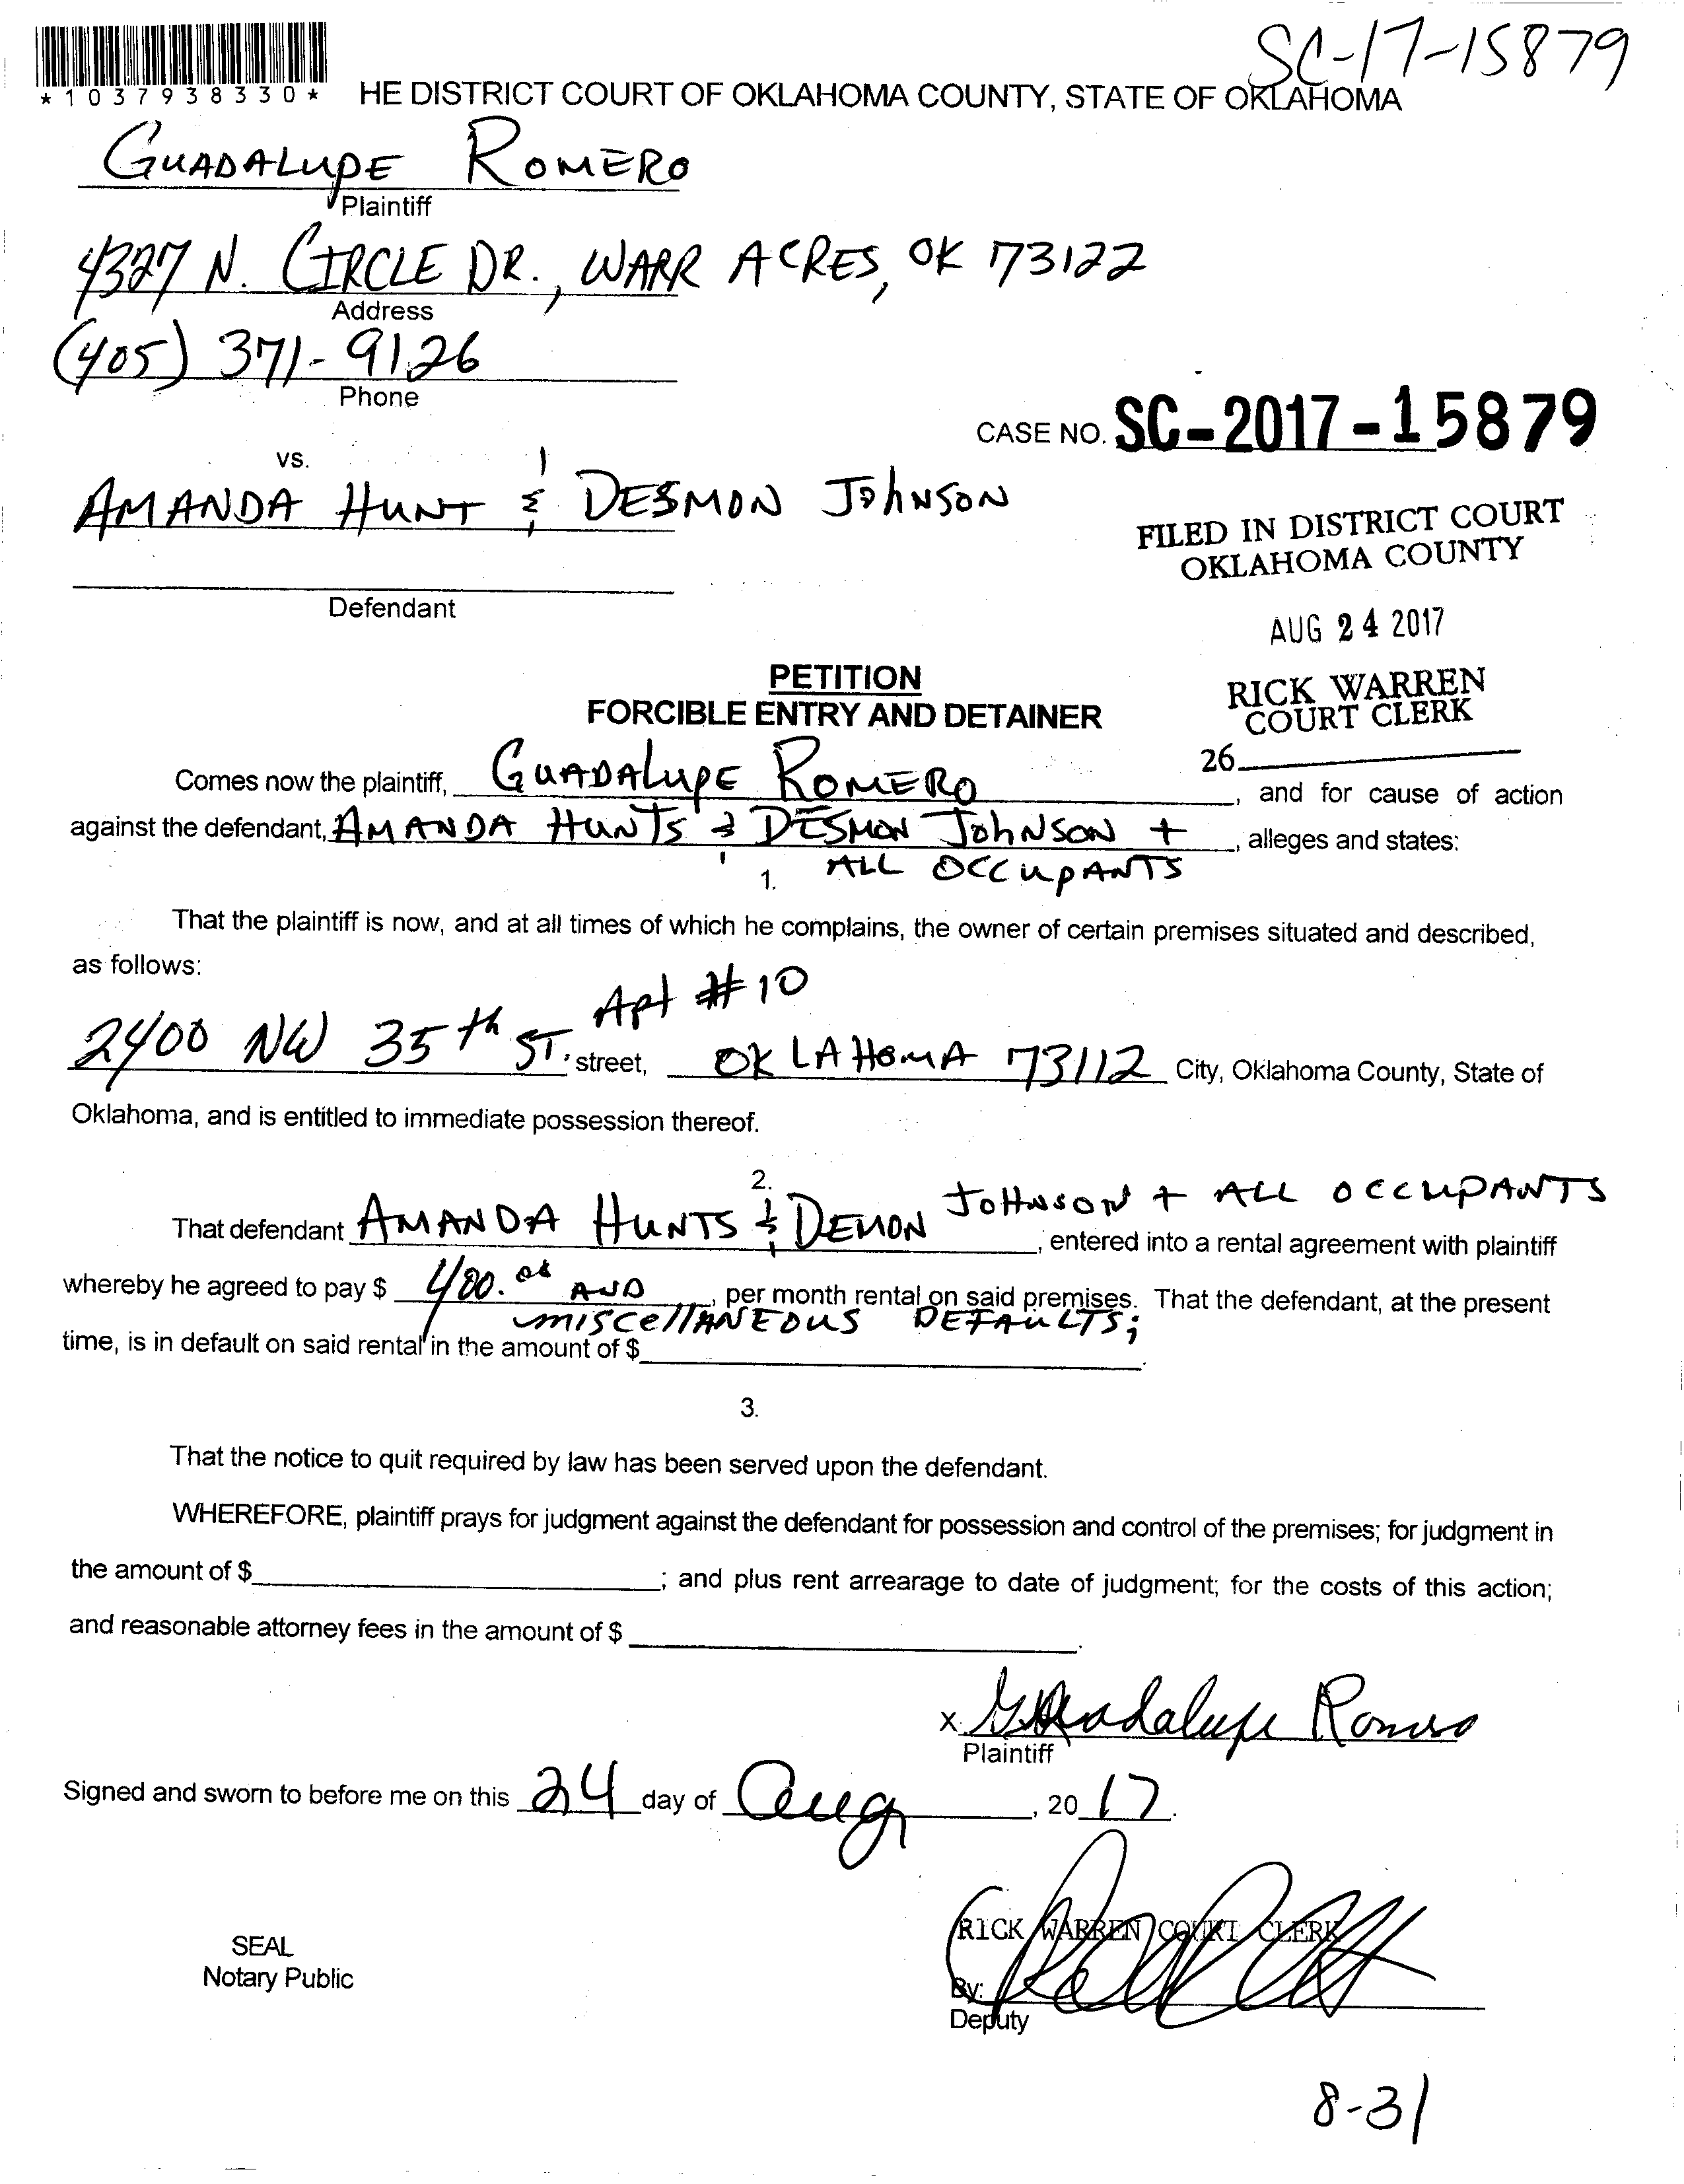 SC-17-15879
*1037938330*
HE DISTRICT COURT OF OKLAHOMA COUNTY, STATE OF OKLAHOMA
GUADALUPE ROMERO
Plaintiff
4327 N. CIRCLE DR., WARR ACRES, OK 73122
Address
(405) 371-9126
Phone
CASE NO. SC-2017-15879
vs.
AMANDA HUNT & DESMON JOHNSON
FILED IN DISTRICT COURT
OKLAHOMA COUNTY
Defendant
AUG 24 2017
PETITION
RICK WARREN
FORCIBLE ENTRY AND DETAINER
COURT CLERK
26
Comes now the plaintiff, GUADALUPE ROMERO, and for cause of action
against the defendant, AMANDA HUNTS & DESMON JOHNSON +, alleges and states:
1. ALL OCCUPANTS
That the plaintiff is now, and at all times of which he complains, the owner of certain premises situated and described,
as follows:
Apt #10
2400 NW 35th ST. street, OKLAHOMA 73112 City, Oklahoma County, State of
Oklahoma, and is entitled to immediate possession thereof.
2.
That defendant AMANDA HUNTS & DEMON JOHNSON + ALL OCCUPANTS, entered into a rental agreement with plaintiff
whereby he agreed to pay $ 400. AND, per month rental on said premises. That the defendant, at the present
MISCELLANEOUS DEFAULTS;
time, is in default on said rental in the amount of $.
3.
That the notice to quit required by law has been served upon the defendant.
WHEREFORE, plaintiff prays for judgment against the defendant for possession and control of the premises; for judgment in
the amount of $; and plus rent arrearage to date of judgment; for the costs of this action;
and reasonable attorney fees in the amount of $.
x Guadalupe Romero
Plaintiff
Signed and sworn to before me on this 24 day of Aug, 2017.
RICK WARREN COURT CLERK
SEAL
Notary Public
By:
Deputy
8-31